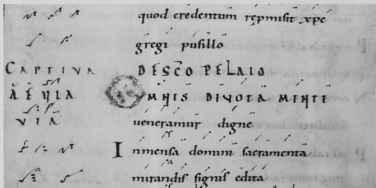 quod credentum repmisit xp̄e
gregi pusillo
CAPTIVA DE SC̄O PELAIO
AEVIA OMNIS DIVOTA MENTI
VIA veneramur digne
Inmensa domini sacramenta
mirandis signis edita